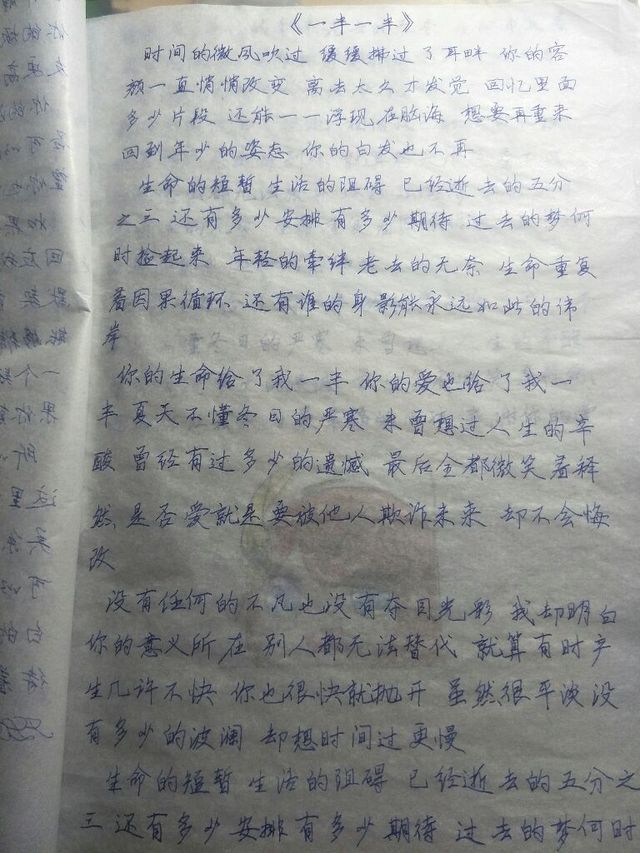 《一半一半》
时间的微风吹过 缓缓拂过了耳畔 你的容
颜一直悄悄改变 离去太久才发觉 回忆里面
多少片段 还能一一浮现在脑海 想要再重来
回到年少的姿态 你的白发也不再
生命的短暂 生活的阻碍 已经逝去的五分
之三 还有多少安排有多少期待 过去的梦何
时捡起来 年轻的牵绊 老去的无奈 生命重复
着因果循环 还有谁的身影能永远如此的伟
岸
你的生命给了我一半 你的爱也给了我一
半 夏天不懂冬日的严寒 未曾想过人生的辛
酸 曾经有过多少的遗憾 最后全都微笑着释
然 是否爱就是要被他人欺诈未来 却不会悔
改
没有任何的不凡也没有夺目光彩 我却明白
你的意义所在 别人都无法替代 就算有时产
生几许不快 你也很快就抛开 虽然很平淡没
有多少的波澜 却想时间过更慢
生命的短暂 生活的阻碍 已经逝去的五分之
三 还有多少安排有多少期待 过去的梦何时